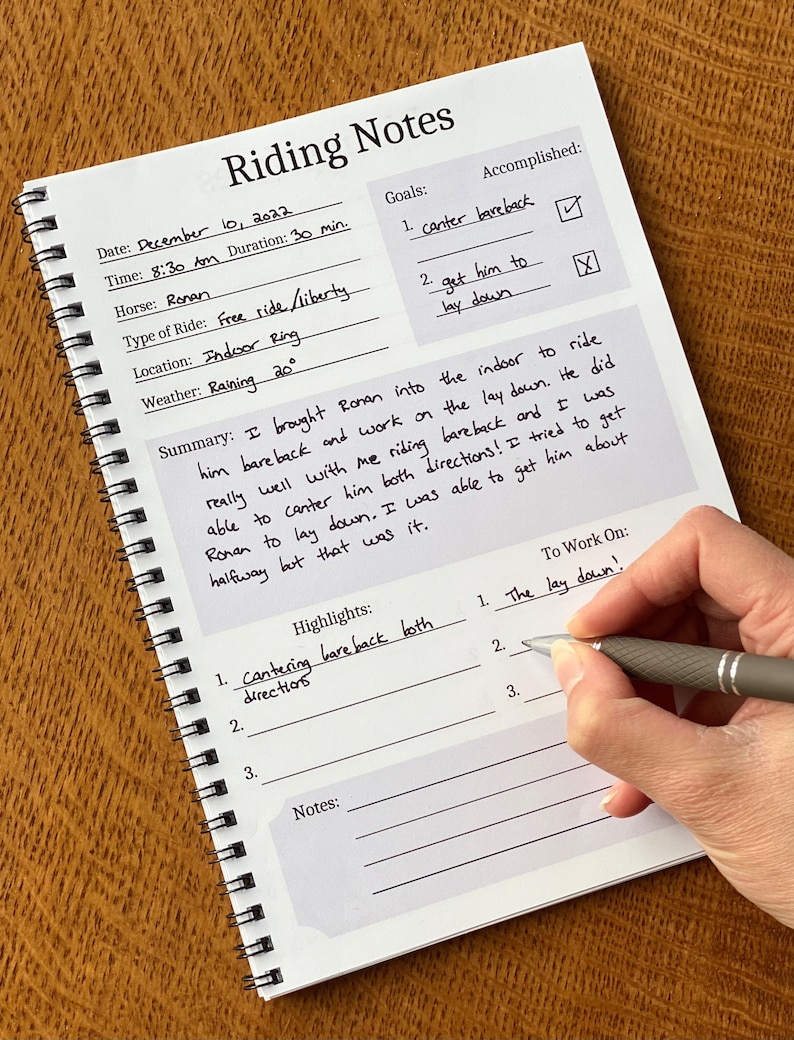 Riding Notes
Date: December 10, 2022
Time: 8:30 AM Duration: 30 min.
Horse: Ronan
Type of Ride: Free ride/liberty
Location: Indoor Ring
Weather: Raining 20°
Goals: Accomplished:
1. canter bareback ✓
2. get him to X
lay down
Summary: I brought Ronan into the indoor to ride
him bareback and work on the lay down. He did
really well with me riding bareback and I was
able to canter him both directions! I tried to get
Ronan to lay down. I was able to get him about
halfway but that was it.
Highlights:
1. cantering bareback both
directions
2.
3.
To Work On:
1. The lay down!
2.
3.
Notes: